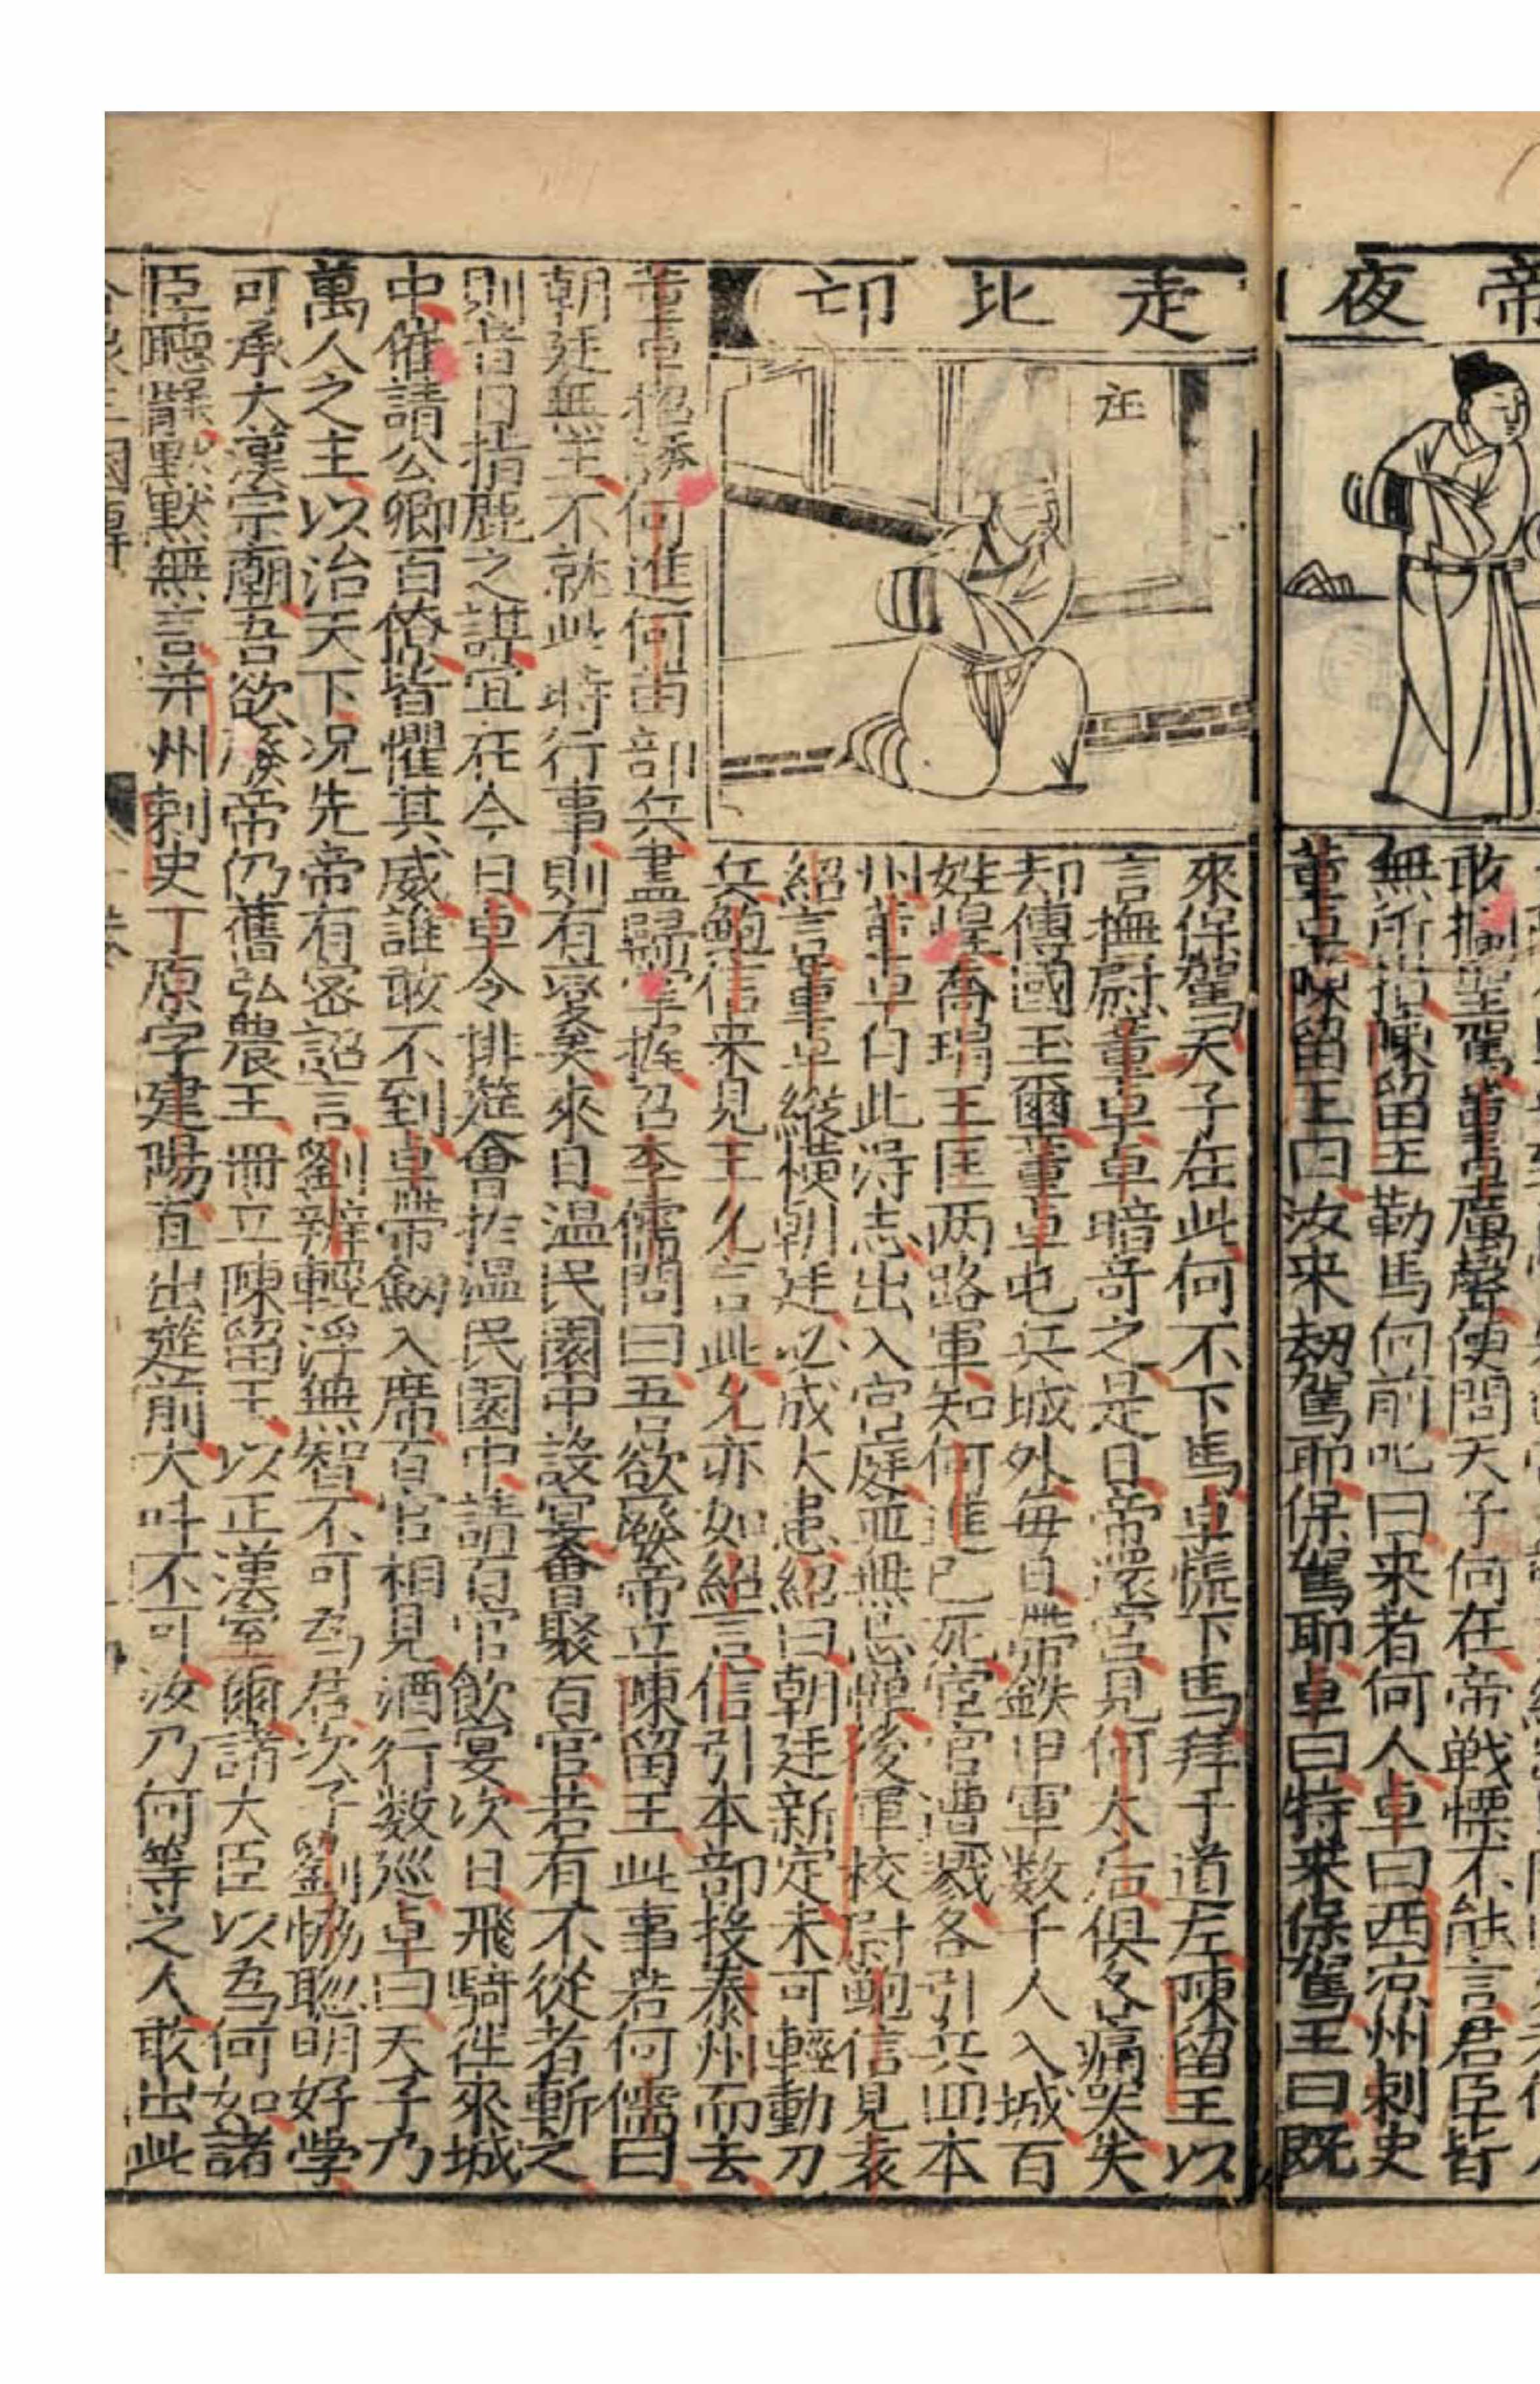 帝夜
敢攔聖駕董卓厲聲便問天子何在帝戦慄不能言君臣皆
無所措陳留王勒馬向前叱曰来者何人卓曰西凉州刺史
董卓陳留王曰汝来劫駕耶保駕耶卓曰特来保駕王曰既
走北邙
來保駕天子在此何不下馬卓慌下馬拜于道左陳留王以
言撫慰董卓卓暗奇之是日帝還宫見何太后俱各痛哭失
却傳國玉爾董卓屯兵城外每日帶鉄甲軍数千人入城百
姓惶喬瑁王匡两路軍知何進已死宦官遭戮各引兵囬本
州董卓自此得志出入宫庭並無忌憚後軍校尉鮑信見袁
紹言董卓縱横朝廷必成大患紹曰朝廷新定未可輕動刀
兵鮑信来見王允言此允亦如紹言信引本部投泰州而去
董卓招誘何進何苗部兵盡歸掌握召李儒問曰吾欲廢帝立陳留王此事若何儒曰
朝廷無主不就此時行事則有変矣來日温民園中設宴會聚百官若有不從者斬之
則昔日指鹿之謀宜在今日卓令排筵會於温民園中請百官飲宴次日飛騎徃來城
中催請公卿百僚皆懼其威誰敢不到卓帶劔入席百官相見酒行数巡卓曰天子乃
萬人之主以治天下况先帝有密詔言劉辨輕浮無智不可為君次子劉恊聪明好学
可承大漢宗廟吾欲廢帝仍舊弘農王冊立陳留王以正漢室爾諸大臣以為何如諸
臣聽罷默默無言并州剌史丁原字建陽直出筵前大叫不可汝乃何等之人敢出此